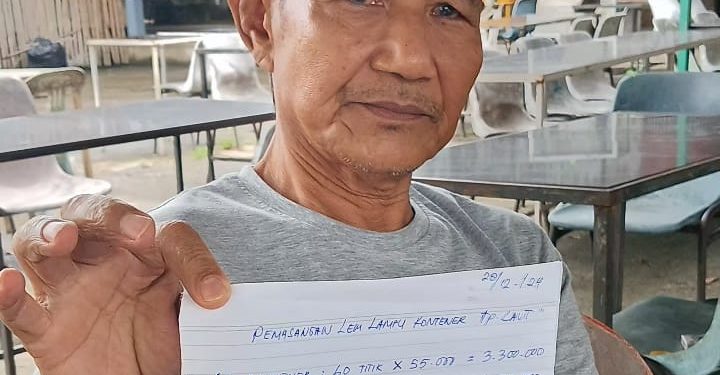 28/12-/24
PEMASANGAN LEM LAMPU KONTENER TP. LAUT"
: 60 TITIK X 55.000 = 3.300.000